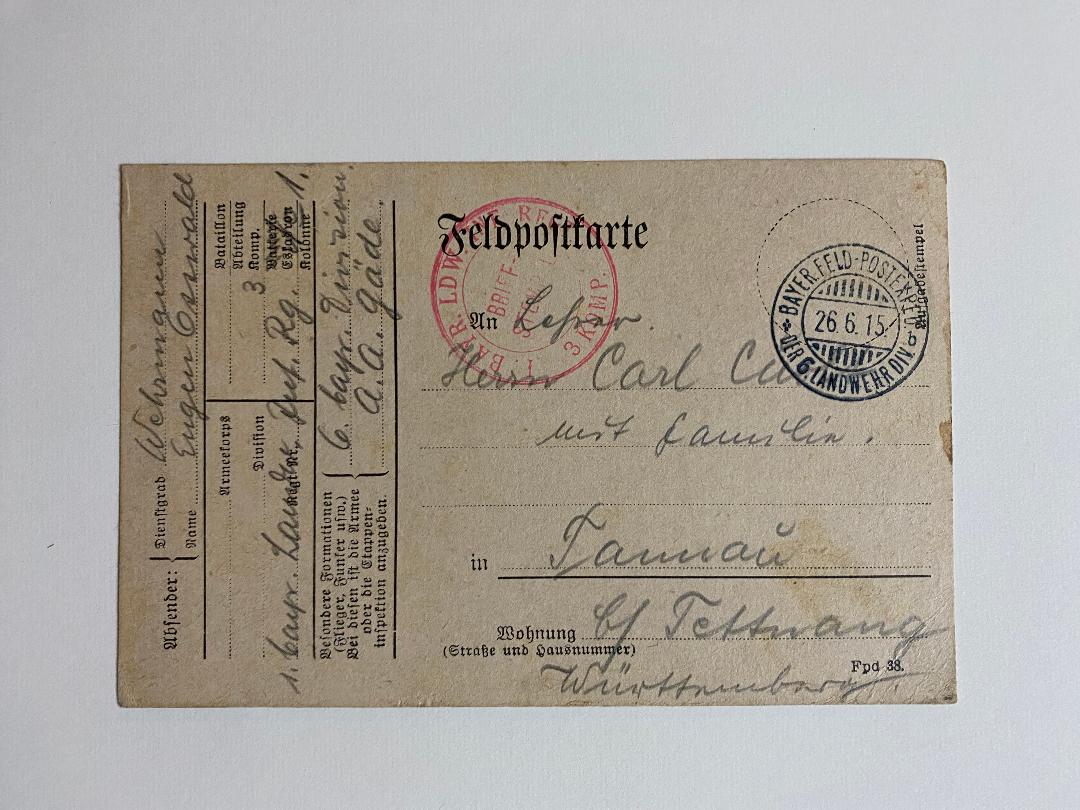 Feldpostkarte
An Lehrer.
Herrn Carl
mit Familie.
in Tannau
Wohnung b/ Tettnang
(Straße und Hausnummer)
Württemberg.
Fpd 38.
Aufgabestempel
BAYER. FELD-POSTEXPED.
26.6.15
DER 6. LANDWEHR DIV.
1 BAYR. LDW. REG
BRIEF-
3 KOMP.
Absender:
Dienstgrad Wehrmann
Name Eugen Osswald
Bataillon
Abteilung
3. Komp.
Batterie
Eskadron
Kolonne
Armeekorps
Division
1. bayr. Landw. Inf. Rg. 1.
Besondere Formationen
(Flieger, Funker usw.)
Bei diesen ist die Armee
oder die Etappen-
inspektion anzugeben.
6. bayr. Division.
A. A. Gäde.